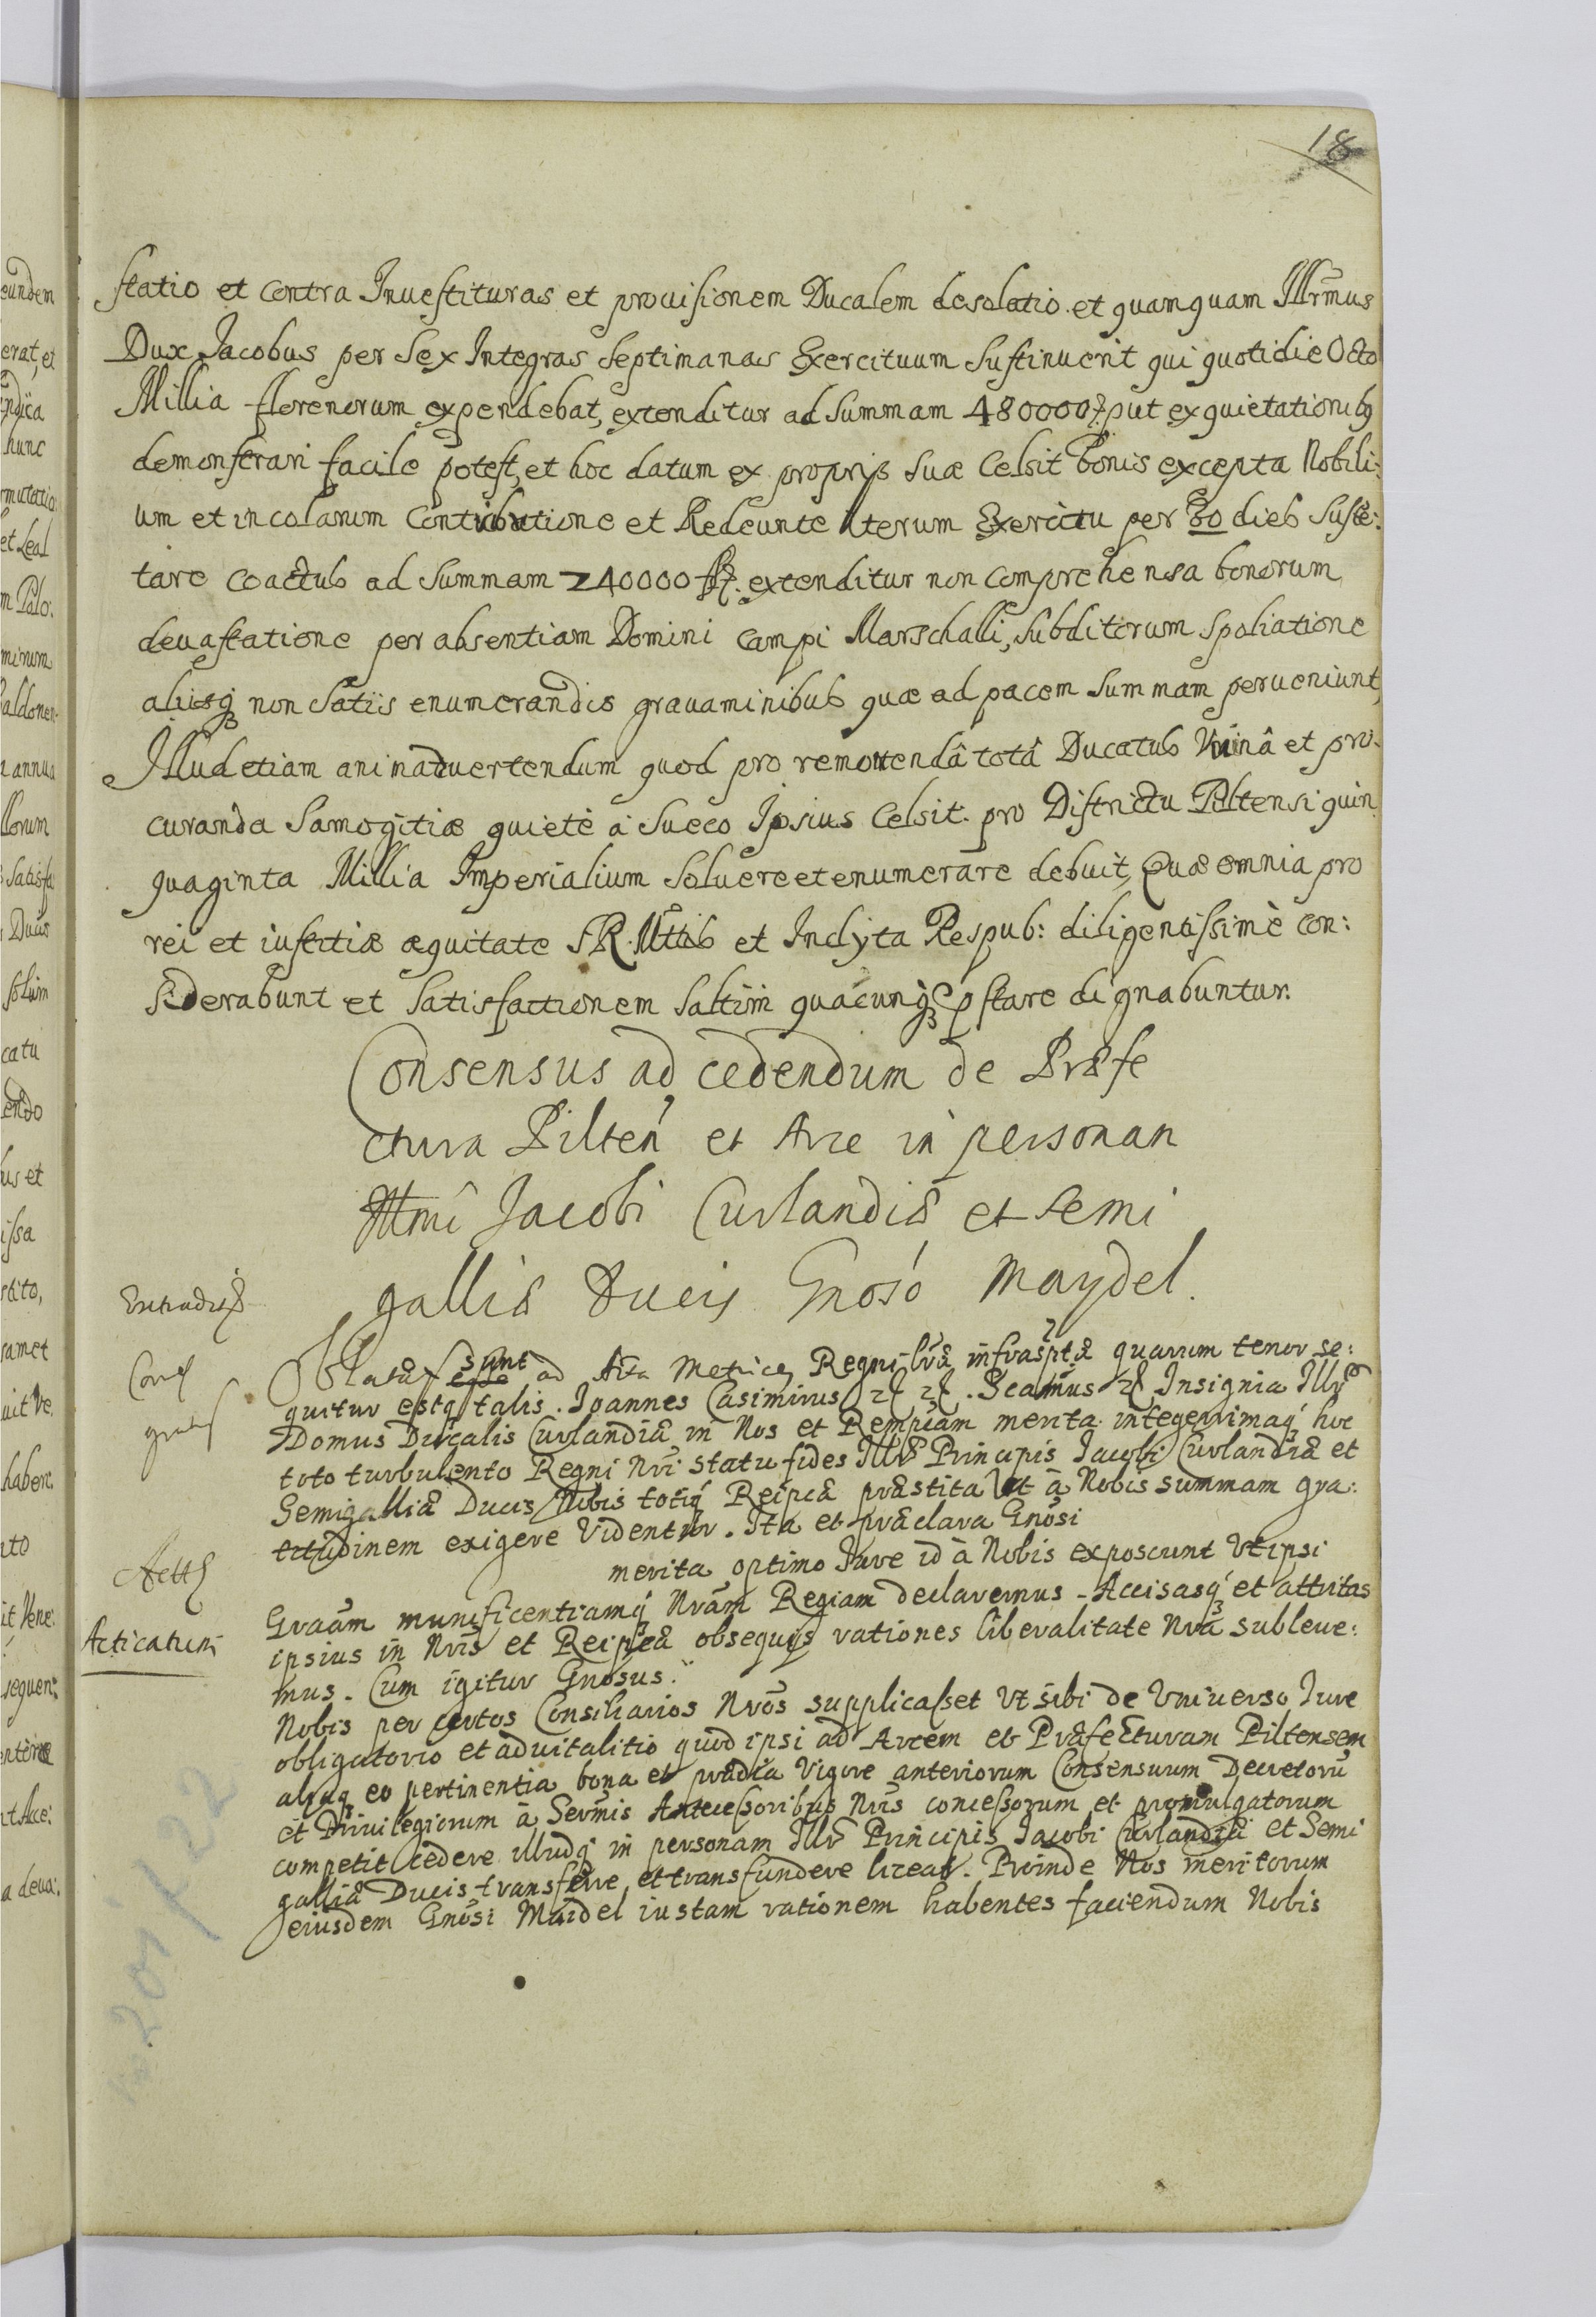 18
statio et contra Inuestituras et prouisionem Ducalem desolatio. et quamquam Illr̃mus
Dux Jacobus per Sex Integras Septimanas Exercituum Sustinuerit qui quotidie Octo
Millia florenorum expendebat, extenditur ad Summam 480000 put ex quietationibq
demonstrari facile potest, et hoc datum ex proprijs Suæ Celsit bonis excepta Nobili:
um et incolarum Contributione et Redeunte iterum Exercitu per 30 dieb Suste:
tare coactus ad Summam 240000 fl. extenditur non comprehensa bonorum
deuastatione per absentiam Domini Campi Marschalli, Subditorum Spoliatione
aliisq non Satiis enumerandis grauaminibus quæ ad pacem Summam perueniunt,
Illud etiam animaduertendum quod pro remouendâ totâ Ducatus Ruinâ et pro:
curanda Samogitiæ quiete à Sueco Ipsius Celsit. pro Districtu Piltensi quin
quaginta Millia Imperialium Soluere et enumerare debuit, Quæ omnia pro
rei et iustitiæ æquitate S.R. Mttis et Inclyta Respub: diligentissimè con:
siderabunt et Satisfactionem Saltim quacunq pstare dignabuntur.
Consensus ad cedendum de Præfe
ctura Pilteń et Arce in personan
Illmi Jacobi Curlandiæ et Semi
galliæ Ducis Gnoso Maydel.
Extraditæ
Corr
gratis
Oblatæ sunt ad Acta Metrices Regni lr̃æ infrascptæ quarum tenor se:
quitur estq talis. Joannes Casimirus . Insignia Illr
Domus Ducalis Curlandiæ in Nos et Rempcam merita integerrimaq hoc
toto turbulento Regni Nri statu fides Illr Principis Jacobi Curlandiæ et
Semigalliæ Ducis Nobis totiq Reipcæ præstita Vt à Nobis summam gra:
titudinem exigere Videntur. Ita et præclara Gnosi
merita optimo Iure id à Nobis exposcunt Vt ipsi
Actt
Acticatum
Graam munificentiamq Nram Regiam declaremus. Accisasq et attritas
ipsius in Nris et Reipcæ obsequijs rationes liberalitate Nra subleue:
mus. Cum igitur Gnosus
Nobis per certos Consiliarios Nros supplicasset Vt sibi de Vniuerso Iure
obligatorio et aduitalitio quod ipsi ad Arcem et Præfecturam Piltensem
aliaq eo pertinentia bona et prædia Vigore anteriorum Consensuum Decretorũ
et Priuilegiorum à Sermis Antecessoribus Nris concessorum et promulgatorum
competit cedere illudq in personam Illr Principis Jacobi Curlandiæ et Semi
galliæ Ducis transferre et transfundere liceat. Proinde Nos meritorum
eiusdem Gnosi Maidel iustam rationem habentes faciendum Nobis